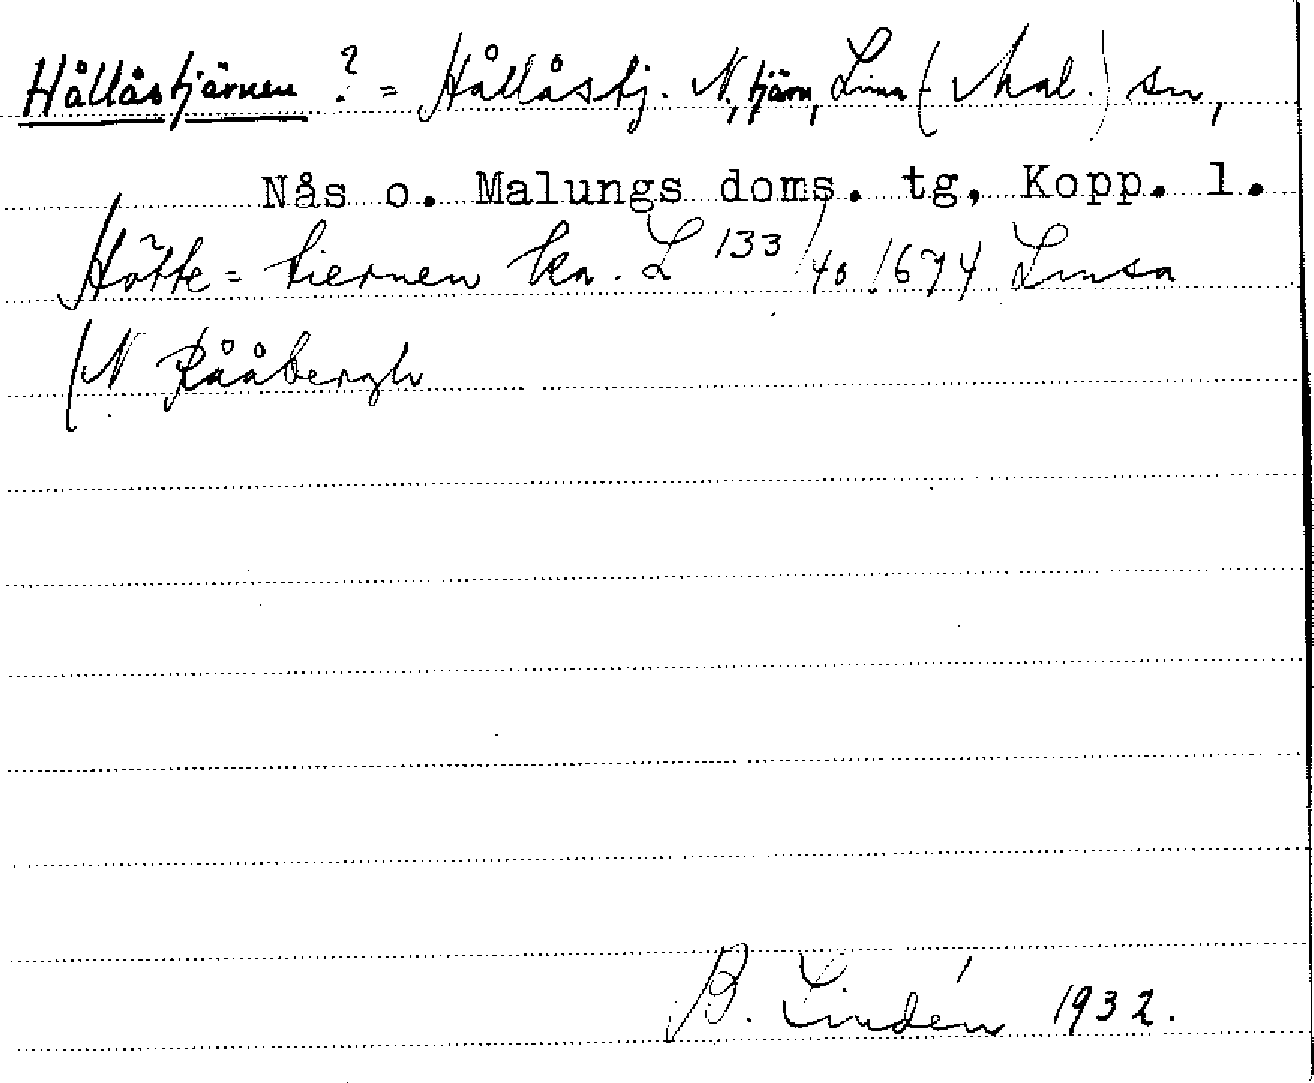 Hållåstjärnen ? = Hållåstj. N, tjärn, Lima (- Mal.) sn,
Nås o. Malungs doms. tg, Kopp. l.
Hötte = tiernen ka. L 133/40 1674 Limsa
N Rååbergh
B. Lindén 1932.